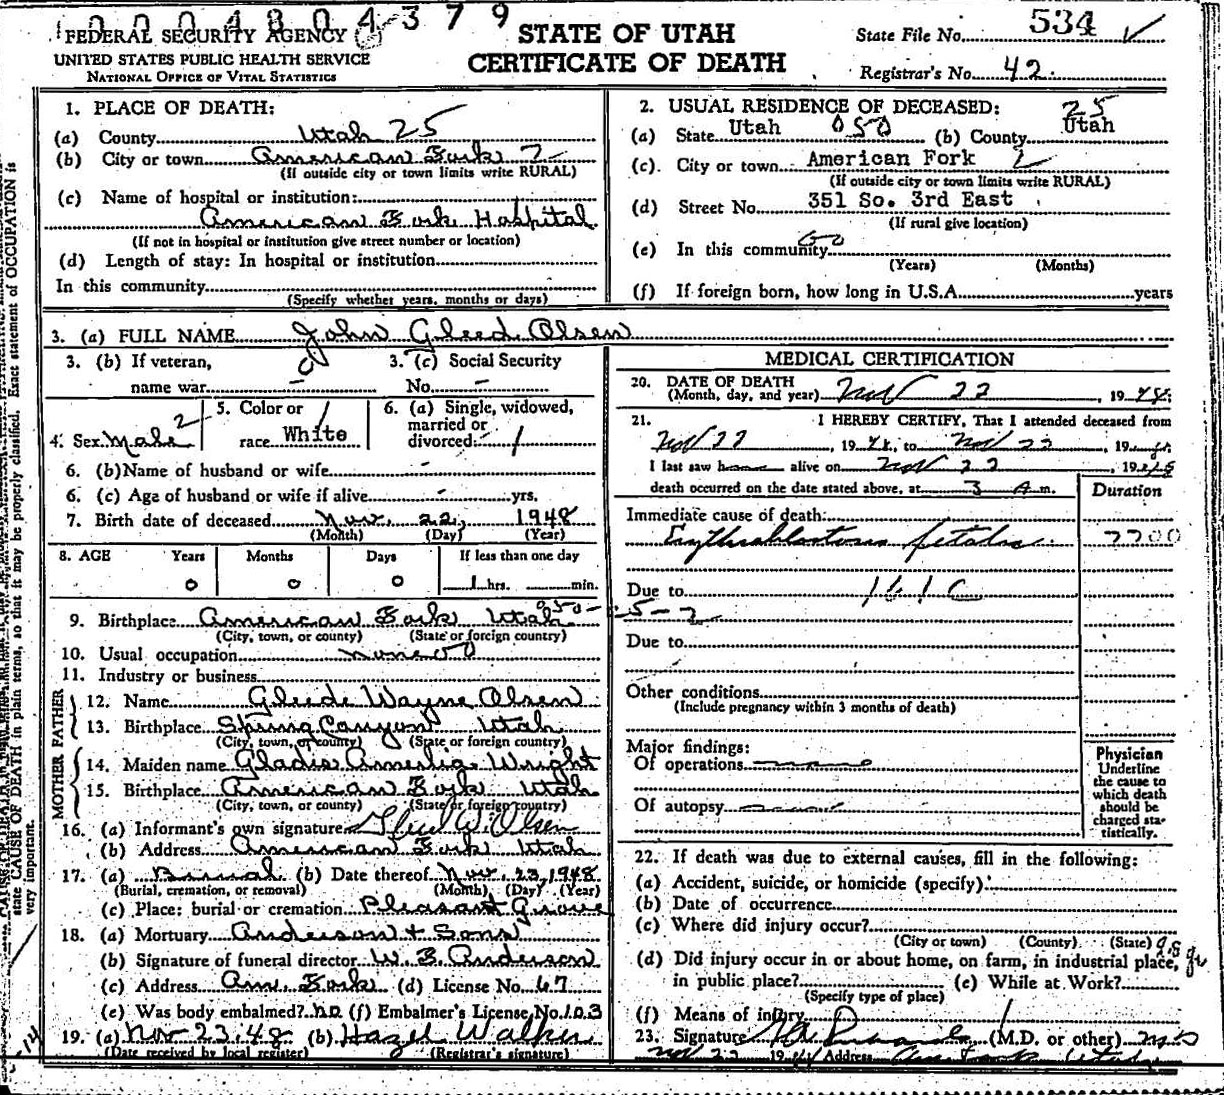 1000480 4379
FEDERAL SECURITY AGENCY
UNITED STATES PUBLIC HEALTH SERVICE
NATIONAL OFFICE OF VITAL STATISTICS
STATE OF UTAH
CERTIFICATE OF DEATH
State File No. 534 ✓
Registrar's No. 42
state CAUSE OF DEATH in plain terms, so that it may be properly classified. Exact statement of OCCUPATION is
very important.
1. PLACE OF DEATH:
(a) County Utah 25
(b) City or town American Fork 2
(If outside city or town limits write RURAL)
(c) Name of hospital or institution:
American Fork Hospital
(If not in hospital or institution give street number or location)
(d) Length of stay: In hospital or institution
In this community
(Specify whether years, months or days)
2. USUAL RESIDENCE OF DECEASED: 25
(a) State Utah 050 (b) County Utah
(c) City or town American Fork 2
(If outside city or town limits write RURAL)
(d) Street No. 351 So. 3rd East
(If rural give location)
(e) In this community
(Years) (Months)
(f) If foreign born, how long in U.S.A. years
3. (a) FULL NAME John Gleed Olsen
3. (b) If veteran,
name war -
3. (c) Social Security
No. -
4. Sex Male 2
5. Color or
race White /
6. (a) Single, widowed,
married or
divorced: /
6. (b) Name of husband or wife -
6. (c) Age of husband or wife if alive - yrs.
7. Birth date of deceased Nov. 22, 1948
(Month) (Day) (Year)
8. AGE Years Months Days If less than one day
0 0 0 1 hrs. min.
9. Birthplace American Fork Utah 050-25-2
(City, town, or county) (State or foreign country)
10. Usual occupation none
11. Industry or business
FATHER
12. Name Gleede Wayne Olsen
13. Birthplace Spring Canyon Utah
(City, town, or county) (State or foreign country)
MOTHER
14. Maiden name Gladis Amelia Wright
15. Birthplace American Fork Utah
(City, town, or county) (State or foreign country)
16. (a) Informant's own signature Gleed W. Olsen
(b) Address American Fork Utah
17. (a) Burial (b) Date thereof Nov. 23, 1948
(Burial, cremation, or removal) (Month) (Day) (Year)
(c) Place: burial or cremation Pleasant Grove
18. (a) Mortuary Anderson & Sons
(b) Signature of funeral director W. B. Anderson
(c) Address Am. Fork (d) License No. 67
(e) Was body embalmed? no (f) Embalmer's License No. 103
19. (a) Nov 23, 48 (b) Hazel Walker
(Date received by local register) (Registrar's signature)
MEDICAL CERTIFICATION
20. DATE OF DEATH
(Month, day, and year) Nov 22, 1948
21. I HEREBY CERTIFY, That I attended deceased from
Nov 22, 1948, to Nov 22, 1948
I last saw h alive on Nov 22, 1948
death occurred on the date stated above, at 3 A m.
Duration
Immediate cause of death:
Erythroblastosis fetalis 7700
Due to 161C
Due to
Other conditions
(Include pregnancy within 3 months of death)
Major findings:
Of operations none
Of autopsy
Physician
Underline
the cause to
which death
should be
charged sta-
tistically.
22. If death was due to external causes, fill in the following:
(a) Accident, suicide, or homicide (specify)
(b) Date of occurrence
(c) Where did injury occur?
(City or town) (County) (State)
(d) Did injury occur in or about home, on farm, in industrial place,
in public place? (e) While at Work?
(Specify type of place)
(f) Means of injury
23. Signature (M.D. or other)
Nov 22 19 Address